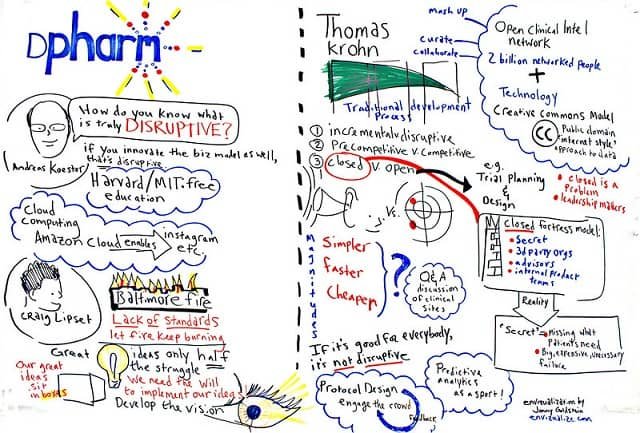 Dpharm
How do you know what
is truly DISRUPTIVE?
Andreas Koester
if you innovate the biz model as well,
that's disruptive
Harvard/MIT: free
education
Cloud
Computing
Amazon Cloud enables
instagram
etc.
Craig Lipset
Baltimore fire
Lack of standards
let fire keep burning
Great
ideas only half
the struggle
Our great
ideas
sit
in boxes
We need the Will
to implement our ideas!
Develop the vision
Thomas
Krohn
mash up
curate
collaborate
Open Clinical Intel
network
2 billion networked people
+
Technology
Creative Commons Model
cc
Public domain
"internet style"
approach to data
Traditional development
process
① incrementally disruptive
② Precompetitive v. Competitive
③ closed v. open
e.g.
Trial planning
&
Design
• closed is a
problem
• leadership makers
vs.
Magnitudes
Simpler
Faster
Cheaper
?
Q&A
discussion
of clinical
sites
closed fortress model:
• Secret
• 3d party orgs
• advisors
• internal product
teams
Reality
"Secret" = Missing what
patients need
• Big, expensive, unnecessary
failure
If it's good for everybody,
it's not disruptive
Protocol Design
engage the crowd
feedback
Predictive
analytics
as a sport!
envisualization by
Jonny Goldstein
envizualize.com